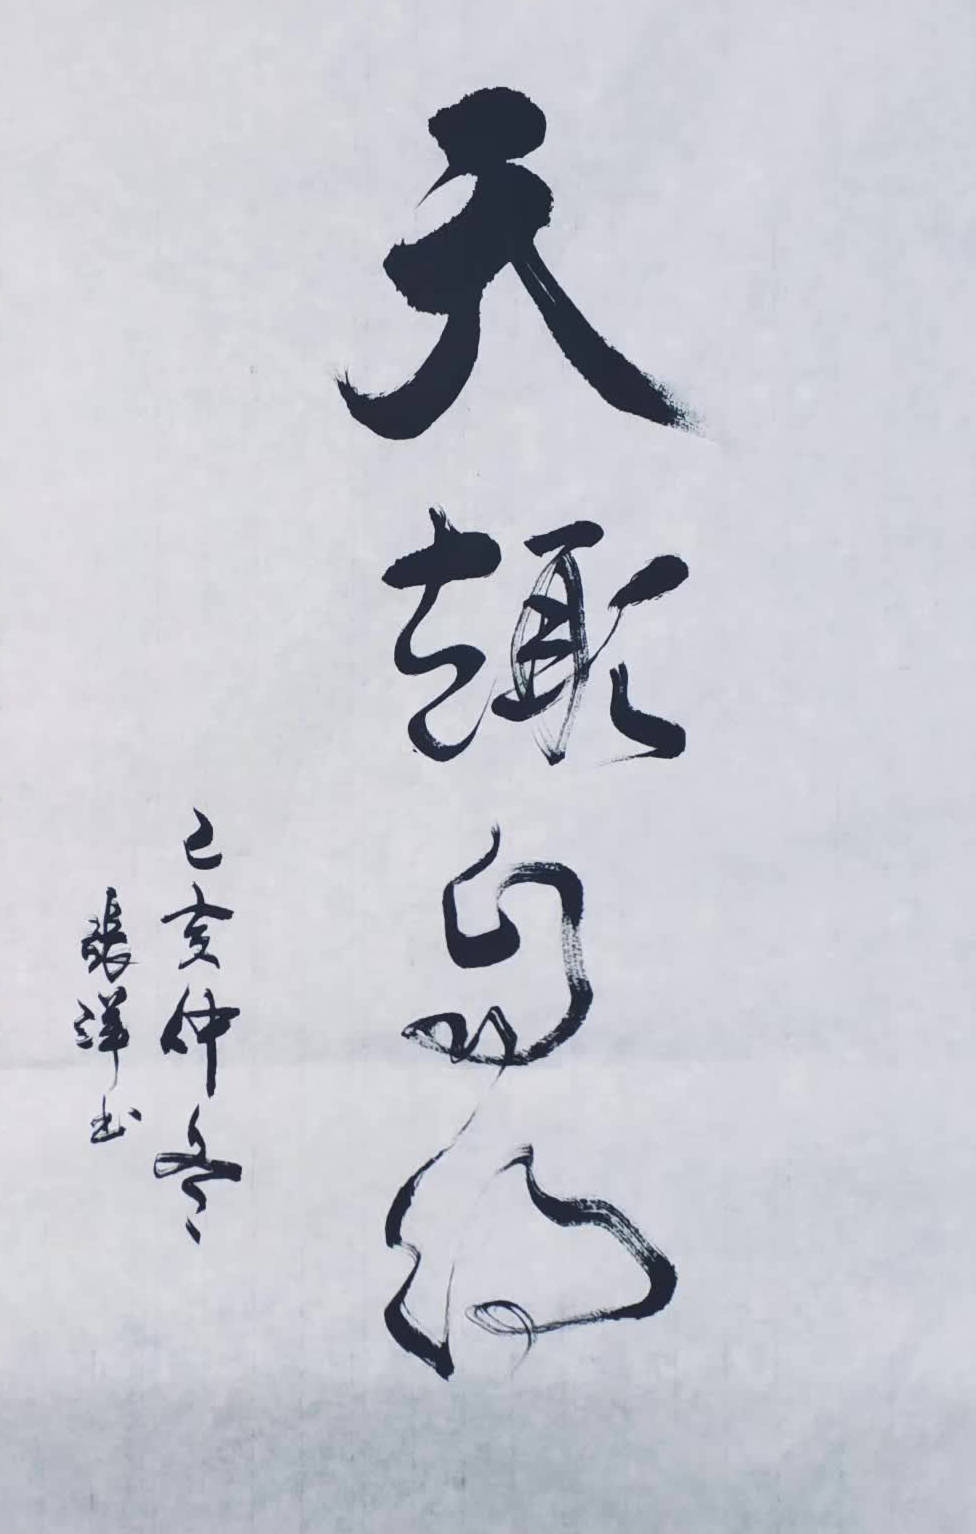 天趣自得
己亥仲冬
張洋书